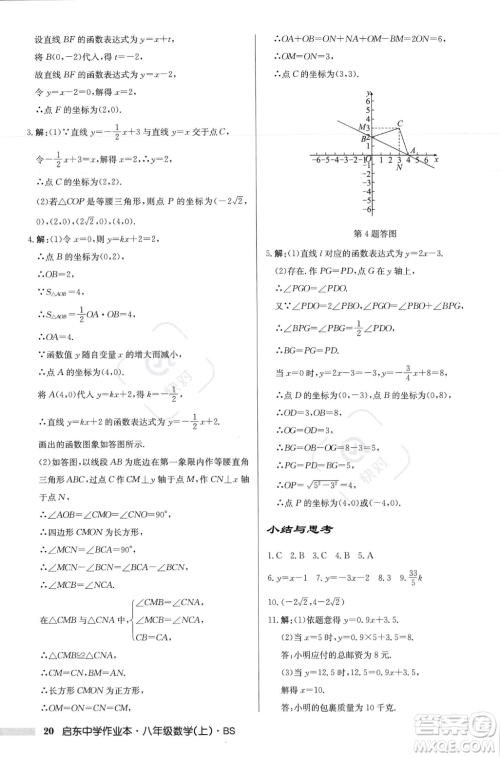 设直线 BF 的函数表达式为 y=x+t,
将(0,-2)代入,得 t=-2,
故直线 BF 的函数表达式为 y=x-2,
∴点 F 的坐标为(2,0).
3.解:(1)∵直线 y=-1/2x+3 与 x 轴交于点 C,
令-1/2x+3=0,则 x=6,
∴点 C 的坐标为(6,0).
(2)若△COP 是等腰三角形,则点 P 的坐标为(-2√2,
0),(2√2,0),(4,0),(2,0).
4.解:(1)令 x=0,则 y=kx+2=2,
∴点 B 的坐标为(0,2),
∴OB=2,
∵S△AOB=4,
∴OA=4.
∵函数值 y 随自变量 x 的增大而减小,
∴点 A 的坐标为(4,0),
将 A(4,0)代入 y=kx+2,得 k=-1/2,
∴直线 y=kx+2 的函数表达式为 y=-1/2x+2.
画出的函数图象如答图所示.
(2)如答图,以线段 AB 为底边在第一象限内作等腰直角
三角形 ABC,过点 C 作 CM⊥y 轴于点 M,CN⊥x 轴
于点 N,
∴四边形 CMON 是矩形,
∴∠MCN=∠BCA=90°,
∴∠MCB=∠NCA,
在△CMB 和△CNA 中,
∠CMB=∠CNA,
∠MCB=∠NCA,
CB=CA,
∴△CMB≌△CNA(AAS),
∴CM=CN,
∴OM=ON,
20 启东中学作业本·八年级数学(上)·BS
∴OA+OB=ON+AN+OM-BM=2ON=6,
∴OM=ON=3,
∴点 C 的坐标为(3,3).
y
6
5
4
M 3
B 2
1
C
A
-6-5-4-3-2-1 O 1 2 3 4 5 6 x
N
-1
-2
-3
-4
-5
-6
第 4 题答图
5.解:(1)直线 l 对应的函数表达式为 y=2x-3.
(2)存在.作 PG=PD,点 G 在 y 轴上,
∵PG=PD,
∴∠PGD=∠PDG.
∵∠PGD=∠BPG+∠PBG,∠PDG=2∠BPG,
∴∠BPG=∠PBG,
∴BG=PG=PD.
当 x=0 时,y=2x-3=-3,y=-3/4x+8=8,
∴点 D 的坐标为(0,-3),点 B 的坐标为(0,8),
∴OD=3,OB=8.
∵OG=OD=3,
∴BG=OB-OG=8-3=5,
∴PD=BG=5,
∴OP=√(5²-3²)=4,
∴点 P 的坐标为(4,0)或(-4,0).
小结与思考
1.C 2.B 3.A 4.D 5.A
6.y=x-1 7.y=-3x-2 8.< 9.33/5 k
10.(-2√2,-2√2)
11.解:(1)依题意得 y=0.9x+3.5.
(2)当 x=5 时,y=0.9x+3.5=8.
答:小明应付的总费用为 8 元.
(3)当 y=12.5 时,0.9x+3.5=12.5,
解得 x=10.
答:小丽购买了 10 本.